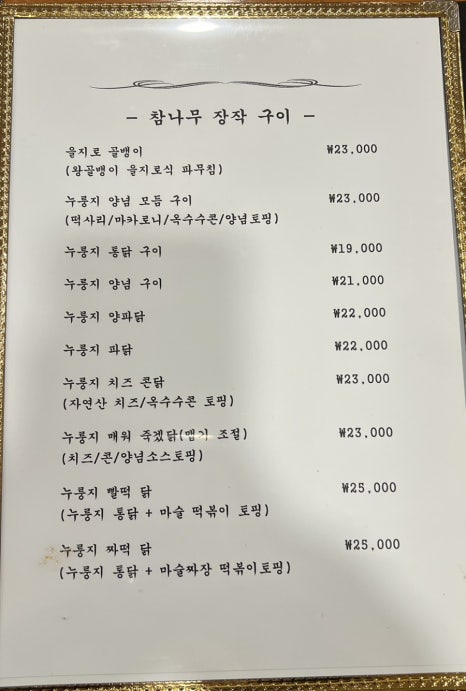 - 참나무 장작 구이 -
을지로 골뱅이 ₩23,000
(왕골뱅이 을지로식 파무침)
누룽지 양념 모듬 구이 ₩23,000
(떡사리/마카로니/옥수수콘/양념토핑)
누룽지 통닭 구이 ₩19,000
누룽지 양념 구이 ₩21,000
누룽지 양파닭 ₩22,000
누룽지 파닭 ₩22,000
누룽지 치즈 콘닭 ₩23,000
(자연산 치즈/옥수수콘 토핑)
누룽지 매워 죽겠닭(맵기 조절) ₩23,000
(치즈/콘/양념소스토핑)
누룽지 빨떡 닭 ₩25,000
(누룽지 통닭 + 마슬 떡볶이 토핑)
누룽지 짜떡 닭 ₩25,000
(누룽지 통닭 + 마슬짜장 떡볶이토핑)